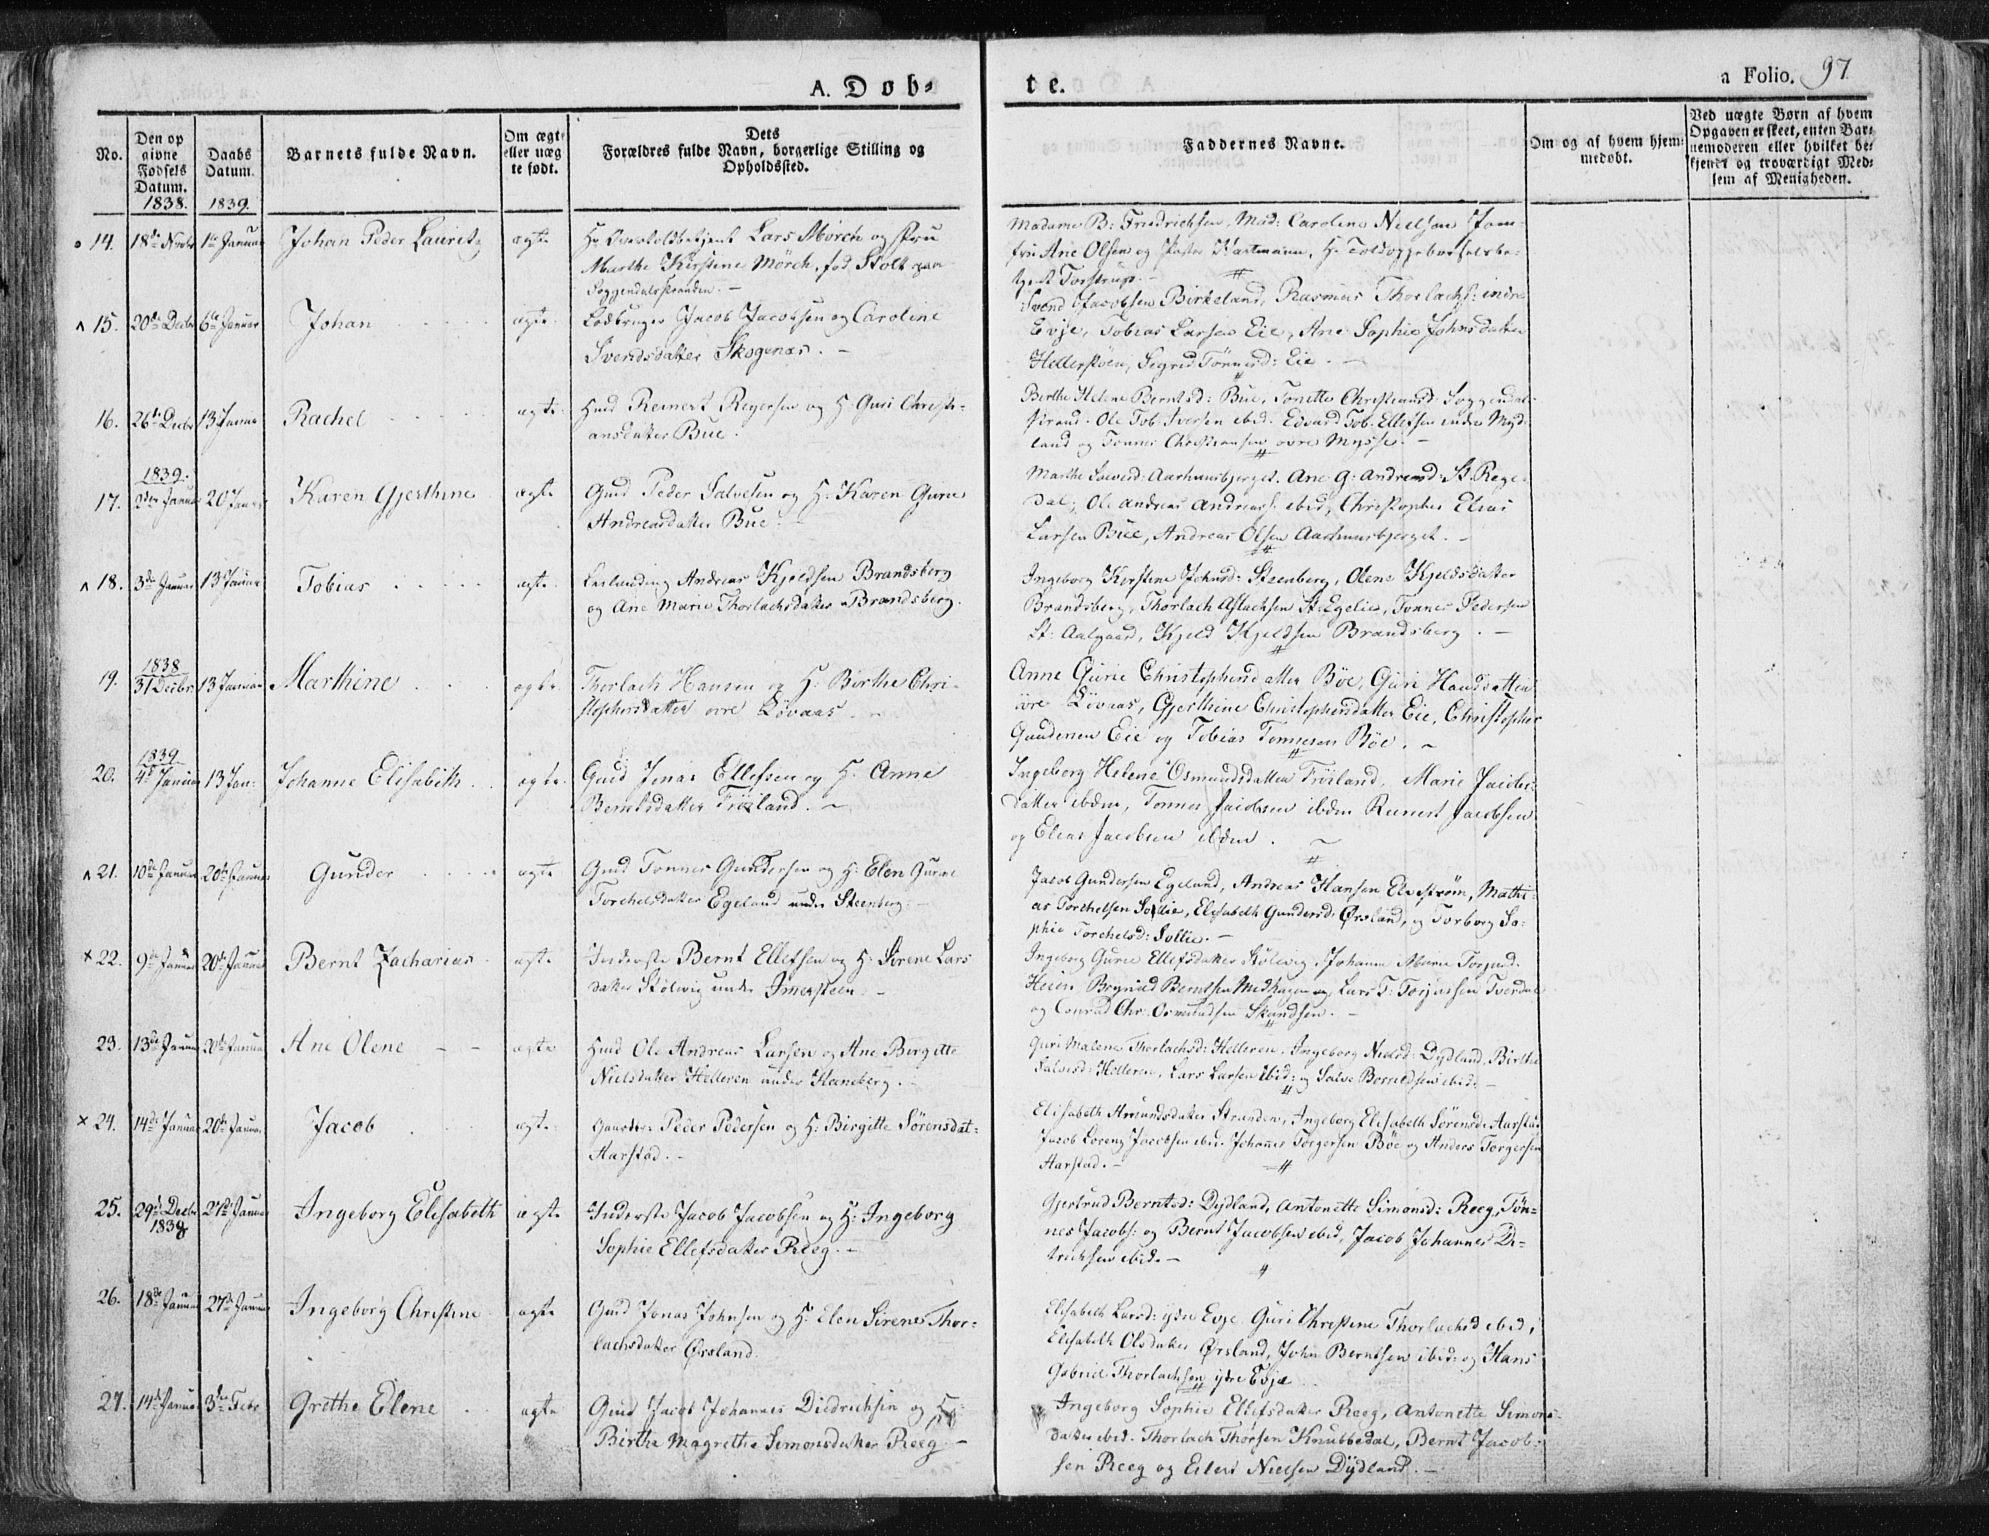 A. Döb-
te.
a Folio. 97
No.
Den op
givne
Födsels
Datum.
1838.
Daabs
Datum.
1839.
Barnets fulde Navn.
Om ægte
eller uæg
te født.
Dets
Forældres fulde Navn, borgerlige Stilling og
Opholdssted.
Faddernes Navne.
Om og af hvem hjem-
medøbt.
Ved uægte Børn af hvem
Opgaven er skeet, enten Bar-
nemoderen eller hvilket be-
kjendt og troværdigt Med-
lem af Menigheden.
14. 18de Novbr 1ste Januar Johan Peder Lauritz ægte Hr Lars Mørch og Fru
Marthe Kirstine Mörch, fød Stolt
Soggendalsstranden. -
Madame B: Friedrichsen, Mad: Caroline Nielsen Jom-
fru Ane Olsen og Hartmann, Hr.
Torstrup. -
15. 20de Decbr 6te Januar Johan ægte Jacob Jacobsen og Caroline
Svendsdatter Skogenæs. -
Svend Jacobsen Birkeland, Rasmus Thorlachs: indre
Evje, Tobias Larsen Eie, Ane Sophie Johnsdatter
Helleråen, Segred Tönnesd: Eie. -
16. 26de Decbr 13 Januar Rachel ægte Gmd Reinert Reyersen og H: Guri Christi-
ansdatter Bue.
Birthe Helene Berntsd: Bue, Tonette Christiansd: Soggendals
strand. Ole Tob. Iversen ibid. Edvard Tob. Ellefsen indre Myd-
land og Tönnes Christiansen øvre Mysse. -
17. 1839. 3die Januar 20 Januar Karen Gjerthine ægte Gmd Peder Salvesen og H: Karen Gurie
Andreasdatter Bue. -
Marthe Aarhuusbjerget. Ane G: Andreasd: St. Rege-
dal, Ole Andreas Andreass. ibid, Christopher Elias
Larsen Bue, Andreas Olsen Aarhuusbjerget. -
18. 3de Januar 13 Januar Tobias ægte Andreas Kjeldsen Brandsberg
og Ane Marie Thorlachsdatter Brandsberg.
Ingeborg Kirstine Johnsd: Steenberg, Olene Kjeldsdatter
Brandsberg, Thorlach Aslachsen St: Egelie, Tönnes Pedersen
St: Aalgaard, Kjeld Kjeldsen Brandsberg. -
19. 1838 31 Decbr. 13 Januar Marthine ægte Thorlach Hansen og H: Birthe Chri-
stophersdatter øvre Lövaas. -
Anne Gurie Christophersdatter Böe, Guri Hansdatter
övre Lövaas, Gjerthine Christophersdatter Eie, Christopher
Gundersen Eie og Tobias Tönnesen Böe. -
20. 1839 4de Januar 13 Jan: Johanne Elisabeth ægte Gmd Jonas Ellefsen og H. Anne
Berntsdatter Fröiland. -
Ingeborg Helene Osmundsdatter Fröiland, Marie Jacobs-
datter ibdm, Tönnes Jacobsen ibdm Reinert Jacobsen
og Elias Jacobsen ibdm. -
21. 10de Januar 20de Januar Gunder ægte Gmd Tönnes Gundersen og H: Elen Gurine
Torchelsdatter Egeland under Steenberg. -
Jacob Gundersen Egeland, Andreas Hansen Elvestrøm, Mathi-
as Torchelsen Sollie, Elisabeth Gundersd. Ørsland, og Torborg So-
phie Torchelsd: Sollie. -
22. 9de Januar 20de Januar Bernt Zacharias ægte Inderste Bernt Ellefsen og H: Sørene Lars
datter Stölevig under Imersteen. -
Ingeborg Gurie Ellefsdatter Stölevig, Johanne Marie Torjusd:
Heien Brynild Berntsen Medhaugen og, Lars T: Torjussen Tverdal
og Conrad Chr: Osmundsen Skandsen. -
23. 13de Januar 20de Januar Ane Olene - - ægte Gmd Ole Andreas Larsen og Ane Birgitte
Nielsdatter Helleren under Haneberg. -
Guri Malene Thorlachsd: Helleren. Ingeborg Nielsd: Dydland, Birthe
Salvesd: Helleren, Lars Larsen ibid: og Salve Berntsen ibid. -
24. 14de Januar 20de Januar Jacob ægte Peder Pedersen og H: Birgitte Sörensdat-
Aarstad. -
Elisabeth Amundsdatter Stranden, Ingeborg Elisabeth Sørensd: Aarstad
Jacob Lorentz Jacobsen ibid. Johannes Torgersen Böe og Anders Torgersen
Aarstad. -
25. 29de Decbr 1838 27de Januar Ingeborg Elisabeth ægte Inderste Jacob Jacobsen og H: Ingeborg
Sophie Ellefsdatter Reeg. -
Gjertrud Berntsd: Dydland, Antonette Simonsd: Reeg, Tön-
nes Jacobs: og Bernt Jacobsen ibid, Jacob Johannes Di-
trichsen ibid. -
26. 18de Januar 27de Januar Ingeborg Christine ægte Gmd Jonas Johnsen og H: Elen Sirene Thor-
lachsdatter Ørsland.
Elisabeth Larsd: ydre Evje. Guri Christine Thorlachsd ibid,
Elisabeth Olsdatter Ørsland, John Berntsen ibid: og Hans
Gabriel Thorlachsen ydre Evje
27. 14de Januar 3die Febr Grethe Elene ægte Gmd Jacob Johannes Didrichsen og H:
Birthe Magrethe Simonsdatter Reeg. -
Ingeborg Sophie Ellefsdatter Reeg, Antonette Simons-
datter ibid. Thorlach Thorsen Knubbedal, Bernt Jacob-
sen Reeg og Eilert Nielsen Dydland. -